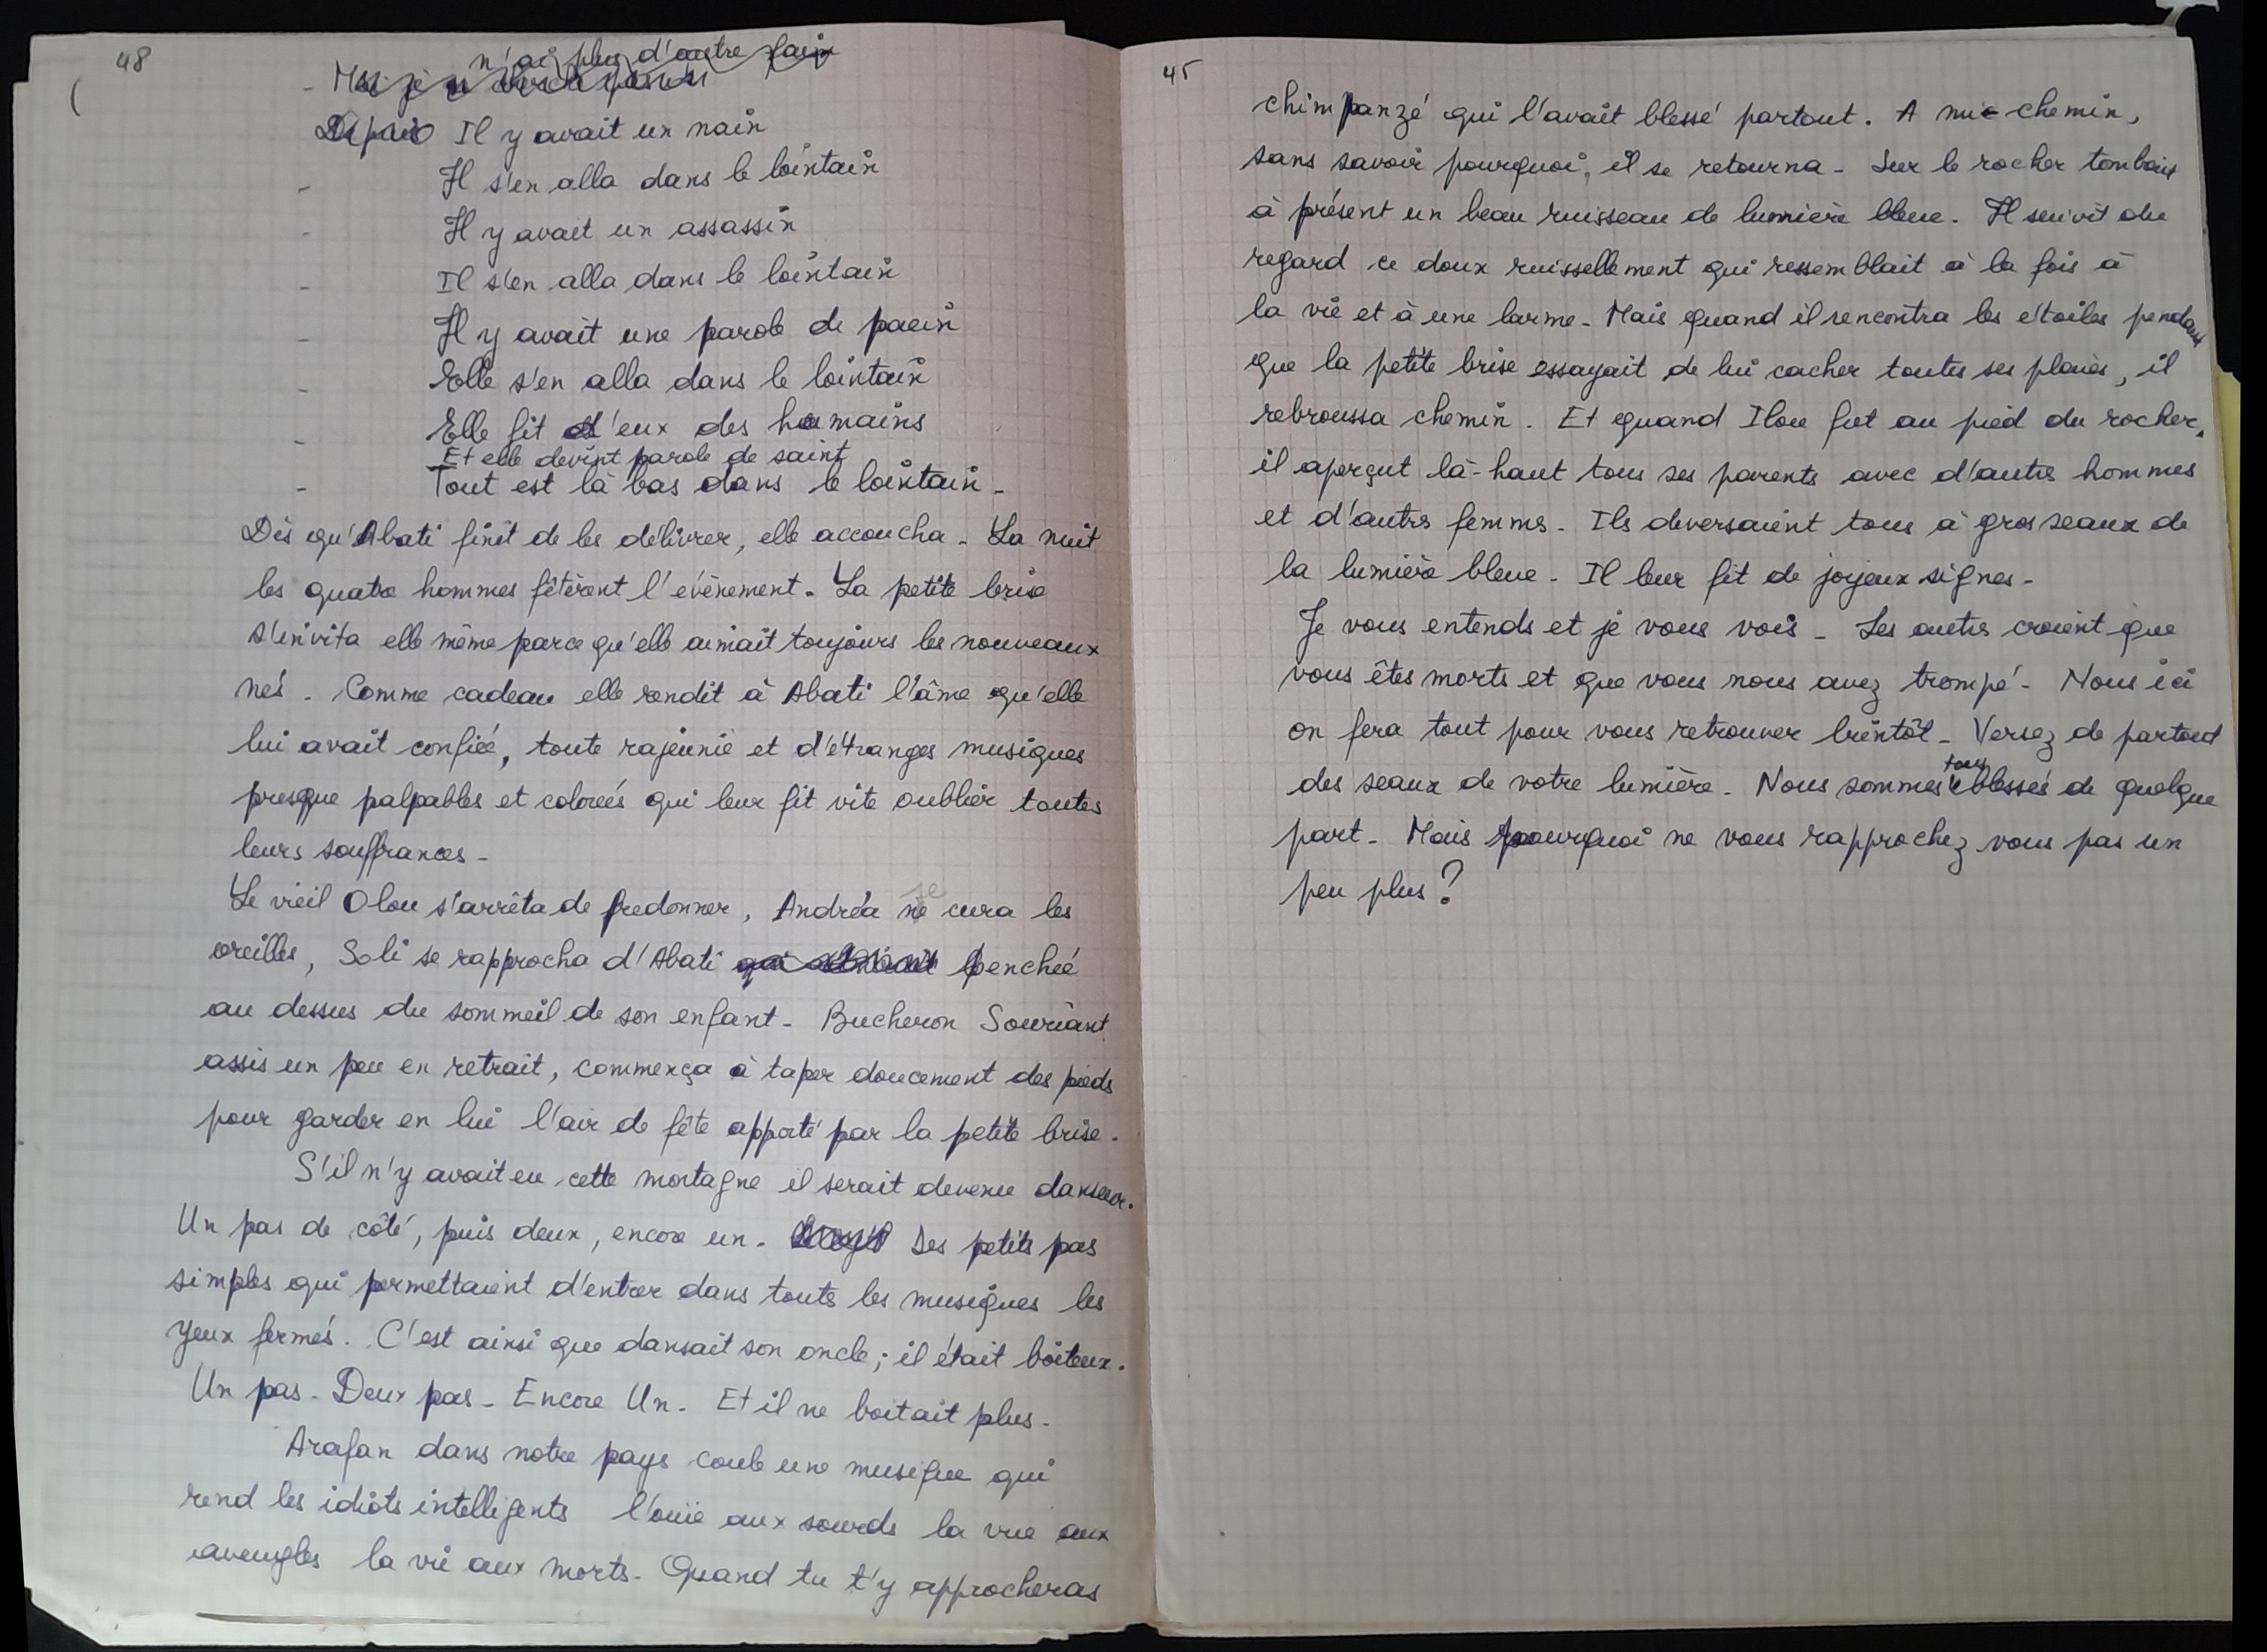 48
n'ai plus d'autre faim
- Moi je
Depuis Il y avait un nain
- Il s'en alla dans le lointain
- Il y avait un assassin
- Il s'en alla dans le lointain
- Il y avait une parole de paein
- Elle s'en alla dans le lointain
- Elle fit d'eux des humains
Et elle devint parole de saint
- Tout est là bas dans le lointain -
Dès qu'Abati finit de les délivrer, elle accoucha - La nuit
les quatre hommes fêtèrent l'evènement. La petite brise
s'invita elle même parce qu'elle aimait toujours les nouveaux
nés - Comme cadeau elle rendit à Abati l'âme qu'elle
lui avait confiée, toute rajeunie et d'étranges musiques
presque palpables et colorées qui leur fit vite oublier toutes
leurs souffrances -
Le vieil Olou s'arrêta de fredonner, Andréa se cura les
oreilles, Soli se rapprocha d'Abati penchée
au dessus du sommeil de son enfant - Bucheron Souriant
assis un peu en retrait, commença à taper doucement des pieds
pour garder en lui l'air de fête apporté par la petite brise.
S'il n'y avait eu cette montagne il serait devenu danseur.
Un pas de côté, puis deux, encore un - Des petits pas
simples qui permettaient d'entrer dans toutes les musiques les
yeux fermés. C'est ainsi que dansait son oncle; il était boiteux.
Un pas - Deux pas - Encore Un - Et il ne boitait plus -
Arafan dans notre pays coule une musique qui
rend les idiots intelligents l'ouïe aux sourds la vue aux
aveugles la vie aux morts - Quand tu t'y approcheras
45
chimpanzé qui l'avait blessé partout. A mi-chemin,
sans savoir pourquoi, il se retourna - Sur le rocher tombait
à présent un beau ruisseau de lumière bleue. Il suivit du
regard ce doux ruissellement qui ressemblait à la fois à
la vie et à une larme - Mais quand il rencontra les étoiles pendant
que la petite brise essayait de lui cacher toutes ses plaies, il
rebroussa chemin. Et quand Ilou fut au pied du rocher,
il aperçut là-haut tous ses parents avec d'autres hommes
et d'autres femmes - Ils deversaient tous à gros seaux de
la lumière bleue - Il leur fit de joyeux signes -
Je vous entends et je vous vois - Les autres croient que
vous êtes morts et que vous nous avez trompé - Nous ici
on fera tout pour vous retrouver bientôt - Versez de partout
des seaux de votre lumière - Nous sommes tous blessés de quelque
part - Mais pourquoi ne vous rapprochez vous pas un
peu plus ?